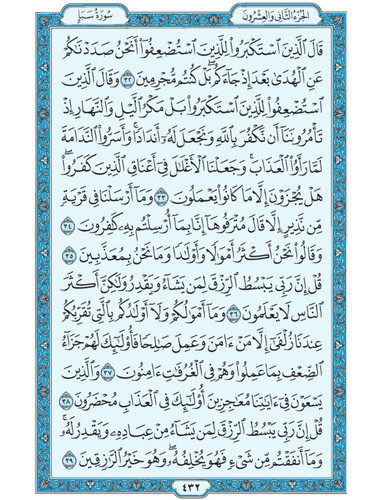 الجُزءُ الثَّانِي وَالعِشْرُونَ سُورَةُ سَبَإٍ
قَالَ ٱلَّذِينَ ٱسْتَكْبَرُواْ لِلَّذِينَ ٱسْتُضْعِفُوٓاْ أَنَحْنُ صَدَدْنَٰكُمْ
عَنِ ٱلْهُدَىٰ بَعْدَ إِذْ جَآءَكُم ۖ بَلْ كُنتُم مُّجْرِمِينَ ٣٢ وَقَالَ ٱلَّذِينَ
ٱسْتُضْعِفُواْ لِلَّذِينَ ٱسْتَكْبَرُواْ بَلْ مَكْرُ ٱلَّيْلِ وَٱلنَّهَارِ إِذْ
تَأْمُرُونَنَآ أَن نَّكْفُرَ بِٱللَّهِ وَنَجْعَلَ لَهُۥٓ أَندَادًا ۚ وَأَسَرُّواْ ٱلنَّدَامَةَ
لَمَّا رَأَوُاْ ٱلْعَذَابَ ۚ وَجَعَلْنَا ٱلْأَغْلَٰلَ فِىٓ أَعْنَاقِ ٱلَّذِينَ كَفَرُواْ ۖ
هَلْ يُجْزَوْنَ إِلَّا مَا كَانُواْ يَعْمَلُونَ ٣٣ وَمَآ أَرْسَلْنَا فِى قَرْيَةٍ
مِّن نَّذِيرٍ إِلَّا قَالَ مُتْرَفُوهَآ إِنَّا بِمَآ أُرْسِلْتُم بِهِۦ كَٰفِرُونَ ٣٤
وَقَالُواْ نَحْنُ أَكْثَرُ أَمْوَٰلًا وَأَوْلَٰدًا وَمَا نَحْنُ بِمُعَذَّبِينَ ٣٥
قُلْ إِنَّ رَبِّى يَبْسُطُ ٱلرِّزْقَ لِمَن يَشَآءُ وَيَقْدِرُ وَلَٰكِنَّ أَكْثَرَ
ٱلنَّاسِ لَا يَعْلَمُونَ ٣٦ وَمَآ أَمْوَٰلُكُمْ وَلَآ أَوْلَٰدُكُم بِٱلَّتِى تُقَرِّبُكُمْ
عِندَنَا زُلْفَىٰٓ إِلَّا مَنْ ءَامَنَ وَعَمِلَ صَٰلِحًا فَأُوْلَٰٓئِكَ لَهُمْ جَزَآءُ
ٱلضِّعْفِ بِمَا عَمِلُواْ وَهُمْ فِى ٱلْغُرُفَٰتِ ءَامِنُونَ ٣٧ وَٱلَّذِينَ
يَسْعَوْنَ فِىٓ ءَايَٰتِنَا مُعَٰجِزِينَ أُوْلَٰٓئِكَ فِى ٱلْعَذَابِ مُحْضَرُونَ ٣٨
قُلْ إِنَّ رَبِّى يَبْسُطُ ٱلرِّزْقَ لِمَن يَشَآءُ مِنْ عِبَادِهِۦ وَيَقْدِرُ لَهُۥ ۚ
وَمَآ أَنفَقْتُم مِّن شَىْءٍ فَهُوَ يُخْلِفُهُۥ ۖ وَهُوَ خَيْرُ ٱلرَّٰزِقِينَ ٣٩
٤٣٢